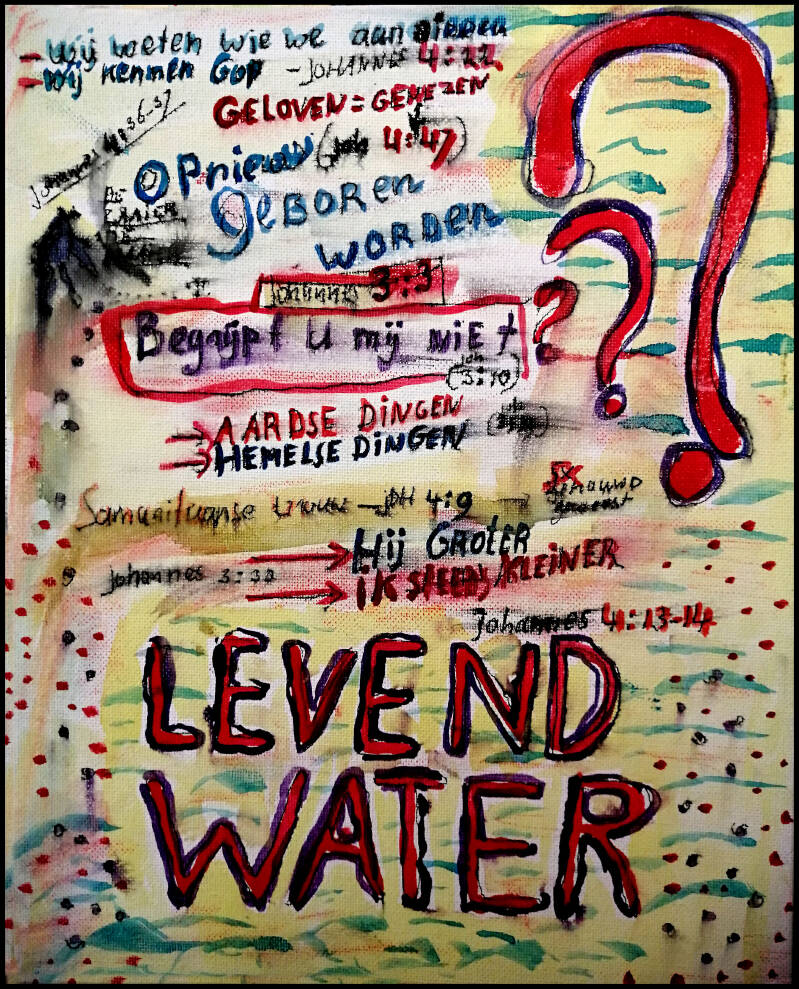 - Wij weten wie we aanbidden
= Wij kennen God - JOHANNES 4:22
GELOVEN = GENEZEN
(Joh 4:47)
OPnieuw
geBOREN
WORDEN
Johannes 3:3
Begrijpt U mij niet ?
(Joh 3:10)
→ AARDSE DINGEN
→ HEMELSE DINGEN
Samaritaanse vrouw - JOH 4:9
5x
getrouwd
geweest
Johannes 3:30 → Hij GROTER
→ iK STEEDS KLEiNER
Johannes 4:13-14
LEVEND
WATER